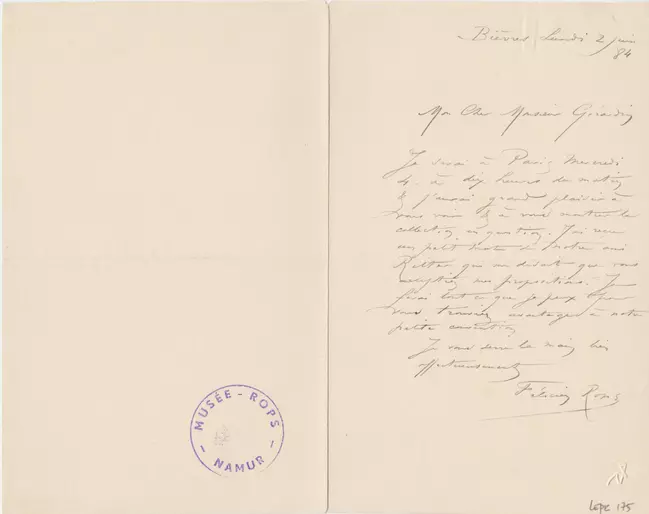 Bièvres Lundi 2 juin
84
Mon Cher Monsieur Girardin
Je serai à Paris Mercredi
4 à dix heures du matin
& j'aurai grand plaisir à
vous voir & à vous montrer la
collection en question. J'ai reçu
un petit mot de notre ami
me disant que vous
acceptiez mes propositions. Je
ferai tout ce que je peux pour
vous trouviez avantages à notre
petite convention
Je vous serre la main bien
affectueusement
Félicien Rops
MUSÉE-ROPS
NAMUR
Lepc 175